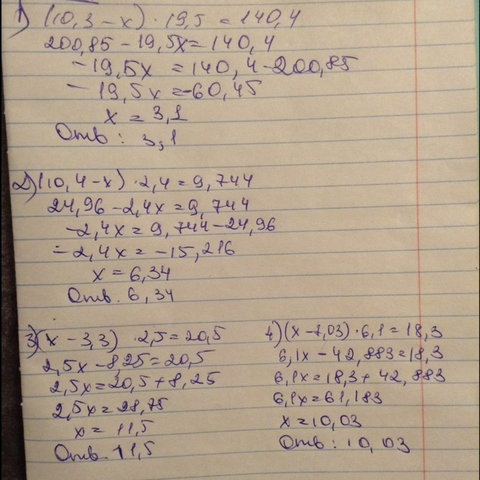 1) (10,3 - x) · 19,5 = 140,4
200,85 - 19,5x = 140,4
- 19,5x = 140,4 - 200,85
- 19,5x = -60,45
x = 3,1
Отв: 3,1
2) (10,4 - x) · 2,4 = 9,744
24,96 - 2,4x = 9,744
-2,4x = 9,744 - 24,96
-2,4x = -15,216
x = 6,34
Отв. 6,34
3) (x - 3,3) · 2,5 = 20,5
2,5x - 8,25 = 20,5
2,5x = 20,5 + 8,25
2,5x = 28,75
x = 11,5
Отв. 11,5
4) (x - 7,03) · 6,1 = 18,3
6,1x - 42,883 = 18,3
6,1x = 18,3 + 42,883
6,1x = 61,183
x = 10,03
Отв: 10,03